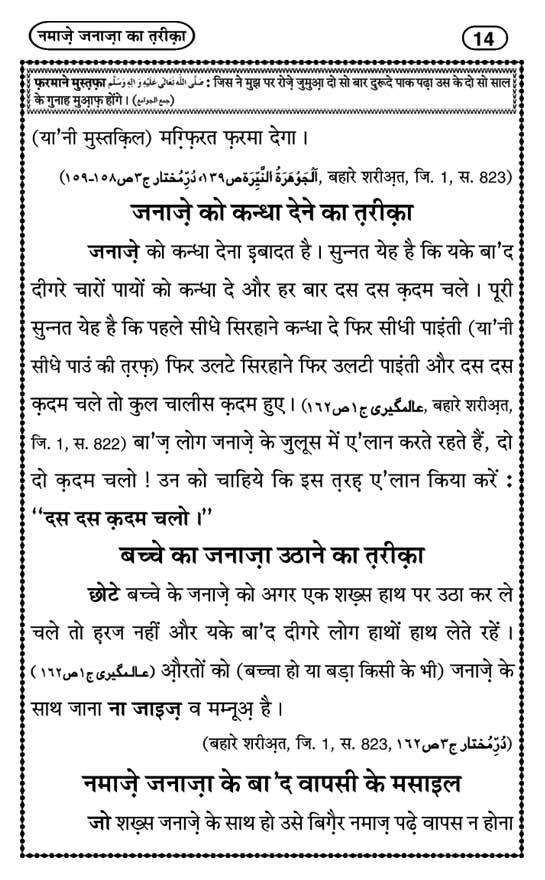 नमाजे़ जनाजा़ का त़रीक़ा
14
फ़रमाने मुस्त़फ़ा صَلَّى اللهُ تَعَالٰى عَلَيْهِ وَاٰلِهٖ وَسَلَّم : जिस ने मुझ पर रोजे़ जुमुआ़ दो सो बार दुरूदे पाक पढ़ा उस के दो सो साल
के गुनाह मुआ़फ़ होंगे । (جمع الجوامع)
(या'नी मुस्तकि़ल) मग़्फि़रत फ़रमा देगा ।
(اَلْجَوْهَرَةُ النَّيِّرَة ص١٣٩، دُرِّمُختار ج٣ص١٥٨-١٥٩, बहारे शरीअ़त, जि. 1, स. 823)
जनाजे़ को कन्धा देने का त़रीक़ा
जनाजे़ को कन्धा देना इ़बादत है । सुन्नत येह है कि यके बा'द
दीगरे चारों पायों को कन्धा दे और हर बार दस दस क़दम चले । पूरी
सुन्नत येह है कि पहले सीधे सिरहाने कन्धा दे फिर सीधी पाइंती (या'नी
सीधे पाउं की त़रफ़) फिर उलटे सिरहाने फिर उलटी पाइंती और दस दस
क़दम चले तो कुल चालीस क़दम हुए । (عالمگیری ج١ص١٦٢, बहारे शरीअ़त,
जि. 1, स. 822) बा'ज़ लोग जनाजे़ के जुलूस में ए'लान करते रहते हैं, दो
दो क़दम चलो ! उन को चाहिये कि इस त़रह़ ए'लान किया करें :
“दस दस क़दम चलो ।”
बच्चे का जनाजा़ उठाने का त़रीक़ा
छोटे बच्चे के जनाजे़ को अगर एक शख़्स हाथ पर उठा कर ले
चले तो ह़रज नहीं और यके बा'द दीगरे लोग हाथों हाथ लेते रहें ।
(عالمگیری ج١ص١٦٢) औ़रतों को (बच्चा हो या बड़ा किसी के भी) जनाजे़ के
साथ जाना ना जाइज़ व मम्नूअ़ है ।
(बहारे शरीअ़त, जि. 1, स. 823, دُرِّمُختار ج٣ص١٦٢)
नमाजे़ जनाजा़ के बा'द वापसी के मसाइल
जो शख़्स जनाजे़ के साथ हो उसे बिगै़र नमाज़ पढे़ वापस न होना